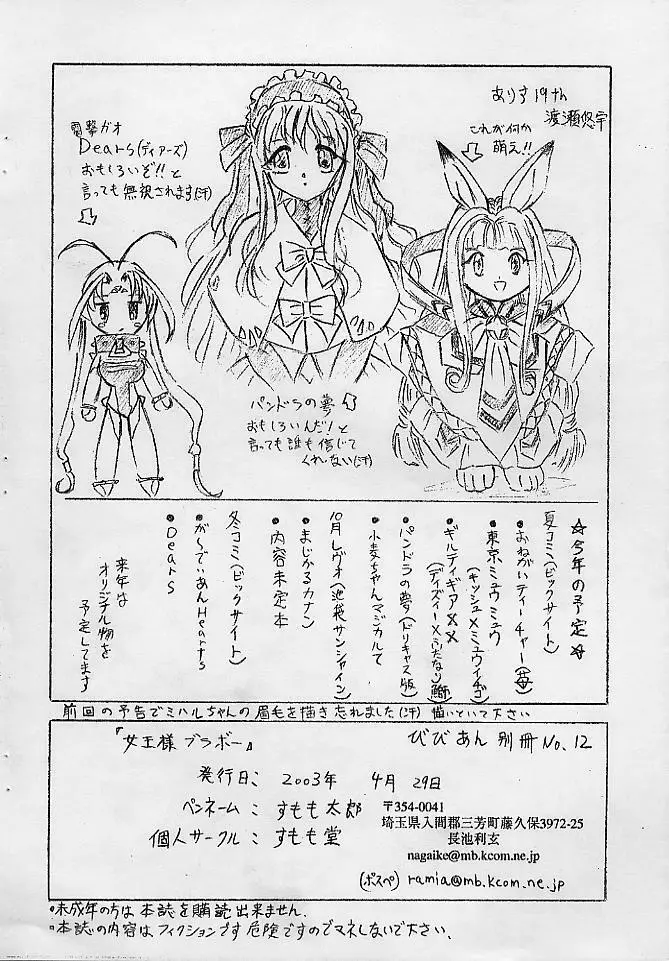 ありす19th
渡瀬悠宇
これが何か
萌え!!
電撃ガオ
Dears(ディアーズ)
おもしろいぞ!!と
言っても無視されます(汗)
パンドラの夢
おもしろいんだ!と
言っても誰も信じて
くれない(汗)
☆今年の予定☆
夏コミ(ビックサイト)
•おねがいティーチャー(苺)
•東京ミュウミュウ
(キッシュ×ミュウイチゴ)
•ギルティギア××
(ディズィー×ふたなり)
•パンドラの夢(ドリキャス版)
•小麦ちゃんマジカルて
10月レヴォ(池袋サンシャイン)
•まじかるカナン
•内容未定本
冬コミ(ビックサイト)
•が〜でぃあんHearts
•Dears
来年は
オリジナル物を
予定してます
前回の予告でミハルちゃんの眉毛を描き忘れました(汗) 描いといて下さい
『女王様ブラボー』
びびあん 別冊 No.12
発行日: 2003年 4月 29日
ペンネーム: すもも太郎
個人サークル: すもも堂
〒354-0041
埼玉県入間郡三芳町藤久保3972-25
長池利玄
nagaike@mb.kcom.ne.jp
(ポスペ) ramia@mb.kcom.ne.jp
•未成年の方は本誌を購読出来ません.
•本誌の内容はフィクションです危険ですのでマネしないで下さい.